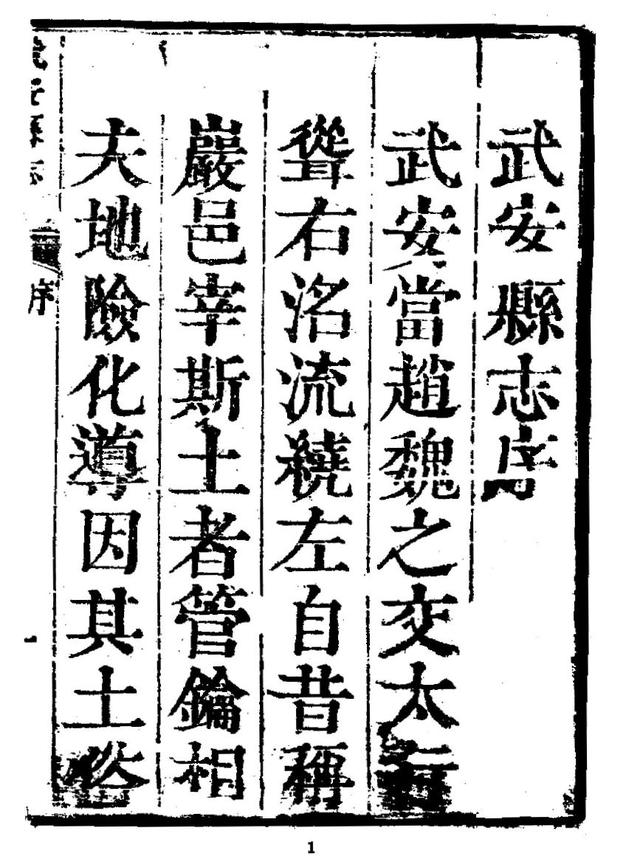 武安縣志序
武安當趙魏之交太行
聳右洺流繞左自昔稱
巖邑宰斯土者管鑰相
夫地險化導因其土俗
序
1